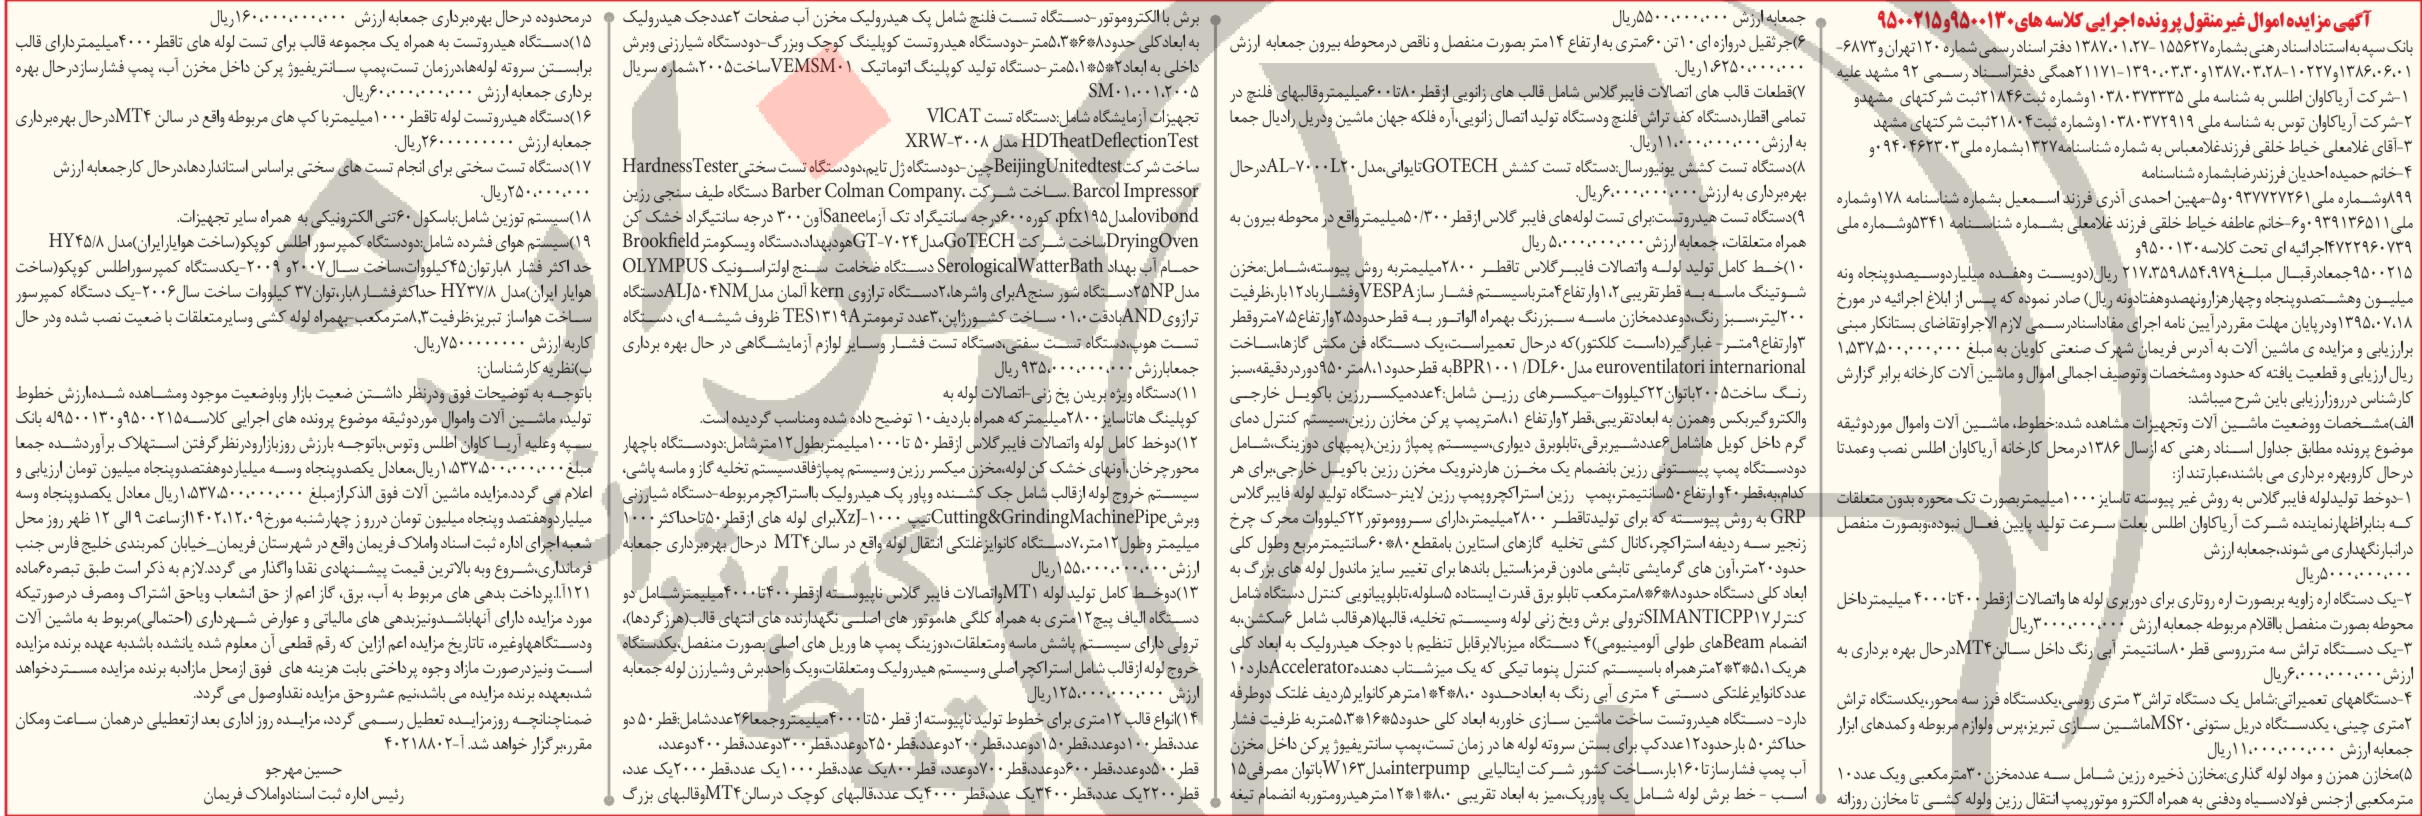 آگهی مزایده اموال غیرمنقول پرونده اجرایی کلاسه های۹۵۰۰۱۳۰و۹۵۰۰۲۱۵
بانک سپه به‌استناد اسناد رهنی بشماره۱۵۵۶۲۷-۱۳۸۷،۰۱،۲۷ دفتر اسناد رسمی شماره ۱۲۰تهران و۶۸۷۳-
۱۳۸۶،۰۶،۰۱و۱۰۲۲۷-۱۳۸۷،۰۳،۲۸و۲۱۱۷۱-۱۳۹۰،۰۳،۳۰همگی دفتراسناد رسمی ۹۲ مشهد علیه
۱-شرکت آریاکاوان اطلس به شناسه ملی ۱۰۳۸۰۳۷۳۳۳۵وشماره ثبت۲۱۸۴۶ثبت شرکتهای مشهدو
۲-شرکت آریاکاوان توس به شناسه ملی ۱۰۳۸۰۳۷۲۹۱۹وشماره ثبت۲۱۸۰۴ثبت شرکتهای مشهد
۳-آقای غلامعلی خیاط خلقی فرزندغلامعباس به شماره شناسنامه۱۳۲۷بشماره ملی۰۹۴۰۴۶۲۳۰۳و
۴-خانم حمیده احدیان فرزندرضابشماره شناسنامه
۸۹۹وشماره ملی۰۹۳۷۷۲۷۲۶۱و۵-مهین احمدی آذری فرزند اسمعیل بشماره شناسنامه ۱۷۸وشماره
ملی۰۹۳۹۱۳۶۵۱۱و۶-خانم عاطفه خیاط خلقی فرزند غلامعلی بشماره شناسنامه ۵۳۴۱وشماره ملی
۴۷۲۲۹۶۰۷۳۹اجرائیه ای تحت کلاسه۹۵۰۰۱۳۰و
۹۵۰۰۲۱۵جمعادرقبال مبلغ۲۱۷،۳۵۹،۸۵۴،۹۷۹ ریال(دویست وهفده میلیاردوسیصدوپنجاه ونه
میلیون وهشتصدوپنجاه وچهارهزارونهصدوهفتادونه ریال) صادر نموده که پس از ابلاغ اجرائیه در مورخ
۱۳۹۵،۰۷،۱۸ودرپایان مهلت مقرردرآیین نامه اجرای مفاداسنادرسمی لازم الاجراوتقاضای بستانکار مبنی
برارزیابی و مزایده ی ماشین آلات به آدرس فریمان شهرک صنعتی کاویان به مبلغ ۱،۵۳۷،۵۰۰،۰۰۰،۰۰۰
ریال ارزیابی و قطعیت یافته که حدود ومشخصات وتوصیف اجمالی اموال و ماشین آلات کارخانه برابر گزارش
کارشناس درروزارزیابی باین شرح میباشد:
الف)مشخصات ووضعیت ماشین آلات وتجهیزات مشاهده شده:خطوط، ماشین آلات واموال موردوثیقه
موضوع پرونده مطابق جداول اسناد رهنی که ازسال ۱۳۸۶درمحل کارخانه آریاکاوان اطلس نصب وعمدتا
درحال کاروبهره برداری می باشند،عبارتند از:
۱-دوخط تولیدلوله فایبرگلاس به روش غیر پیوسته تاسایز۱۰۰۰میلیمتربصورت تک محوره بدون متعلقات
که بنابراظهارنماینده شرکت آریاکاوان اطلس بعلت سرعت تولید پایین فعال نبوده،وبصورت منفصل
درانبارنگهداری می شوند،جمعابه ارزش
۵۰۰۰،۰۰۰،۰۰۰ریال
۲-یک دستگاه اره زاویه بربصورت اره روتاری برای دوربری لوله ها واتصالات ازقطر۴۰۰تا۴۰۰۰ میلیمترداخل
محوطه بصورت منفصل بااقلام مربوطه جمعابه ارزش ۳۰۰۰،۰۰۰،۰۰۰ریال
۳-یک دستگاه تراش سه مترروسی قطر۸۰سانتیمتر آبی رنگ داخل سالنMT۴درحال بهره برداری به
ارزش۶،۰۰۰،۰۰۰،۰۰۰ریال
۴-دستگاههای تعمیراتی:شامل یک دستگاه تراش۳ متری روسی،یکدستگاه فرز سه محور،یکدستگاه تراش
۲متری چینی، یکدستگاه دریل ستونی MS۲۰ماشین سازی تبریز،پرس ولوازم مربوطه وکمدهای ابزار
جمعابه ارزش ۱۱،۰۰۰،۰۰۰،۰۰۰ریال
۵)مخازن همزن و مواد لوله گذاری:مخازن ذخیره رزین شامل سه عددمخزن۳۰مترمکعبی ویک عدد۱۰
مترمکعبی ازجنس فولادسیاه ودفنی به همراه الکترو موتورپمپ انتقال رزین ولوله کشی تا مخازن روزانه
جمعابه ارزش ۵۵۰۰،۰۰۰،۰۰۰ریال
۶)جرثقیل دروازه ای۱۰تن۶۰متری به ارتفاع ۱۴متر بصورت منفصل و ناقص درمحوطه بیرون جمعابه ارزش
۱،۶۲۵۰،۰۰۰،۰۰۰ریال.
۷)قطعات قالب های اتصالات فایبرگلاس شامل قالب های زانویی ازقطر۸۰تا۶۰۰میلیمتروقالبهای فلنچ در
تمامی اقطار،دستگاه کف تراش فلنچ ودستگاه تولید اتصال زانویی،آره فلکه جهان ماشین ودریل رادیال جمعا
به ارزش۱۱،۰۰۰،۰۰۰،۰۰۰ریال.
۸)دستگاه تست کشش یونیورسال:دستگاه تست کشش GOTECHتایوانی،مدلAL-۷۰۰۰L۲۰درحال
بهره‌برداری به ارزش۶،۰۰۰،۰۰۰،۰۰۰ریال.
۹)دستگاه تست هیدروتست:برای تست لوله‌های فایبر گلاس ازقطر۵۰/۳۰۰میلیمترواقع در محوطه بیرون به
همراه متعلقات، جمعابه ارزش۵،۰۰۰،۰۰۰،۰۰۰ ریال
۱۰)خط کامل تولید لوله واتصالات فایبرگلاس تاقطر ۲۸۰۰میلیمتربه روش پیوسته،شامل:مخزن
شوتینگ ماسه به قطرتقریبی۱،۲وارتفاع۴مترباسیستم فشار سازVESPAوفشارباد۱۲بار،ظرفیت
۲۰۰لیتر،سبز رنگ،دوعددمخازن ماسه سبزرنگ بهمراه الواتور به قطرحدود۲،۵وارتفاع۷،۵متروقطر
۳وارتفاع۹متر- غبارگیر(داست کلکتور)که درحال تعمیراست،یک دستگاه فن مکش گازها،ساخت
euroventilatori internarional مدل BPR۱۰۰۱/DL۶۰به قطرحدود۱،۸متر۹۵۰دوردردقیقه،سبز
رنگ ساخت۲۰۰۵باتوان۲۲کیلووات-میکسرهای رزین شامل:۴عددمیکسررزین باکویل خارجی
والکتروگیربکس وهمزن به ابعادتقریبی،قطر۲وارتفاع ۱،۸مترپمپ پرکن مخازن رزین،سیستم کنترل دمای
گرم داخل کویل هاشامل۶عددشیربرقی،تابلوبرق دیواری،سیستم پمپاژ رزین،(پمپهای دوزینگ،شامل
دودستگاه پمپ پیستونی رزین بانضمام یک مخزن هاردنرویک مخزن رزین باکویل خارجی،برای هر
کدام،به،قطر۴۰و ارتفاع ۵۰سانتیمتر،پمپ رزین استراکچروپمپ رزین لاینر-دستگاه تولید لوله فایبرگلاس
GRP به روش پیوسته که برای تولیدتاقطر ۲۸۰۰میلیمتر،دارای سروموتور۲۲کیلووات محرک چرخ
زنجیر سه ردیفه استراکچر،کانال کشی تخلیه گازهای استایرن بامقطع۸۰*۶۰سانتیمترمربع وطول کلی
حدود۲۰متر،آون های گرمایشی تابشی مادون قرمز،استیل باندها برای تغییر سایز ماندول لوله های بزرگ به
ابعاد کلی دستگاه حدود۸*۶*۸مترمکعب تابلو برق قدرت ایستاده ۵سلوله،تابلوپیانویی کنترل دستگاه شامل
کنترلرSIMANTICPP۱۷ترولی برش ویخ زنی لوله وسیستم تخلیه، قالبها(هرقالب شامل ۶سکشن،به
انضمام Beamهای طولی آلومینیومی)۴ دستگاه میزبالابرقابل تنظیم با دوجک هیدرولیک به ابعاد کلی
هریک۵،۱*۳*۲مترهمراه باسیستم کنترل پنوما تیکی که یک میزشتاب دهندهAcceleratorدارد۱۰
عددکانوایرغلتکی دستی ۴ متری آبی رنگ به ابعادحدود ۸،۰*۴*۱مترهرکانوایر۵ردیف غلتک دوطرفه
دارد- دستگاه هیدروتست ساخت ماشین سازی خاوربه ابعاد کلی حدود۵*۱۶*۵،۳متربه ظرفیت فشار
حداکثر ۵۰ بارحدود۱۲عددکپ برای بستن سروته لوله ها در زمان تست،پمپ سانتریفیوژ پرکن داخل مخزن
آب پمپ فشارسازتا۱۶۰بار،ساخت کشور شرکت ایتالیایی interpumpمدلW۱۶۳باتوان مصرفی۱۵
اسب - خط برش لوله شامل یک پاورپک،میز به ابعاد تقریبی ۸،۰*۱*۱۲مترهیدروموتوربه انضمام تیغه
برش با الکتروموتور-دستگاه تست فلنچ شامل پک هیدرولیک مخزن آب صفحات ۲عددجک هیدرولیک
به ابعادکلی حدود۸*۶*۵،۳متر-دودستگاه هیدروتست کوپلینگ کوچک وبزرگ-دودستگاه شیارزنی وبرش
داخلی به ابعاد۲*۵*۵،۱متر-دستگاه تولید کوپلینگ اتوماتیک VEMSM۰۱ساخت۲۰۰۵،شماره سریال
SM۰۱،۰۰۱،۲۰۰۵
تجهیزات آزمایشگاه شامل:دستگاه تست VlCAT
HDTheatDeflectionTest مدل XRW-۳۰۰۸
ساخت شرکتBeijingUnitedtestچین-دودستگاه ژل تایم،دودستگاه تست سختیHardnessTester
Barcol Impressor .ساخت شرکت ،Barber Colman Company دستگاه طیف سنجی رزین
lovibondمدلpfx۱۹۵،کوره۶۰۰درجه سانتیگراد تک آزماSaneeآون۳۰۰ درجه سانتیگراد خشک کن
DryingOvenساخت شرکت GoTECHمدلGT-۷۰۲۴هودبهداد،دستگاه ویسکومترBrookfield
حمام آب بهداد SerologicalWatterBath دستگاه ضخامت سنج اولتراسونیک OLYMPUS
مدل۲۵NPدستگاه شور سنجAبرای واشرها،۲دستگاه ترازوی kern آلمان مدلALJ۵۰۴NMدستگاه
ترازویANDبادقت۰،۰۱ ساخت کشورژاپن،۳عدد ترمومترTES۱۳۱۹A ظروف شیشه ای، دستگاه
تست هوپ،دستگاه تست سفتی،دستگاه تست فشار وسایر لوازم آزمایشگاهی در حال بهره برداری
جمعابارزش ۹۳۵،۰۰۰،۰۰۰،۰۰۰ ریال
۱۱)دستگاه ویژه بریدن پخ زنی-اتصالات لوله به
کوپلینگ هاتاسایز۲۸۰۰میلیمترکه همراه باردیف۱۰ توضیح داده شده ومناسب گردیده است.
۱۲)دوخط کامل لوله واتصالات فایبر گلاس ازقطر ۵۰ تا۱۰۰۰میلیمتربطول۱۲مترشامل:دودستگاه باچهار
محورچرخان،آونهای خشک کن لوله،مخزن میکسر رزین وسیستم پمپاژفاقدسیستم تخلیه گاز و ماسه پاشی،
سیستم خروج لوله ازقالب شامل جک کشنده وپاور پک هیدرولیک بااستراکچرمربوطه-دستگاه شیارزنی
وبرشCutting&GrindingMachinePipeتیپ XzJ-۱۰۰۰برای لوله های ازقطر۵۰تاحداکثر۱۰۰۰
میلیمتر وطول۱۲متر،۷دستگاه کانوایزغلتکی انتقال لوله واقع در سالنMT۴ درحال بهره‌برداری جمعابه
ارزش۱۵۵،۰۰۰،۰۰۰،۰۰۰ریال
۱۳)دوخط کامل تولید لوله MT۱واتصالات فایبر گلاس ناپیوسته ازقطر۴۰۰تا۴۰۰۰میلیمترشامل دو
دستگاه الیاف پیچ۱۲متری به همراه کلگی ها،موتور های اصلی نگهدارنده های انتهای قالب(هرزگردها)،
ترولی دارای سیستم پاشش ماسه ومتعلقات،دوزینگ پمپ ها وریل های اصلی بصورت منفصل،یکدستگاه
خروج لوله ازقالب شامل استراکچر اصلی وسیستم هیدرولیک ومتعلقات،ویک واحدبرش وشیارزن لوله جمعابه
ارزش ۱۲۵،۰۰۰،۰۰۰،۰۰۰ریال
۱۴)انواع قالب ۱۲متری برای خطوط تولید ناپیوسته از قطر ۵۰تا۴۰۰۰میلیمتروجمعا۲۶عددشامل:قطر۵۰ دو
عدد،قطر۱۰۰دوعدد،قطر۱۵۰دوعدد،قطر۲۰۰دوعدد،قطر۲۵۰دوعدد،قطر۳۰۰دوعدد،قطر۴۰۰دوعدد،
قطر۵۰۰دوعدد،قطر۶۰۰دوعدد،قطر۷۰۰دوعدد، قطر۸۰۰یک عدد،قطر۱۰۰۰یک عدد،قطر۲۰۰۰یک عدد،
قطر۲۲۰۰یک عدد،قطر۳۴۰۰یک عدد،قطر ۴۰۰۰یک عدد،قالبهای کوچک درسالنMT۴وقالبهای بزرگ
درمحدوده درحال بهره‌برداری جمعابه ارزش ۱۶۰،۰۰۰،۰۰۰،۰۰۰ریال
۱۵)دستگاه هیدروتست به همراه یک مجموعه قالب برای تست لوله های تاقطر۴۰۰۰میلیمتردارای قالب
برابستن سروته لوله‌ها،درزمان تست،پمپ سانتریفیوژ پرکن داخل مخزن آب، پمپ فشارسازدرحال بهره
برداری جمعابه ارزش ۶۰،۰۰۰،۰۰۰،۰۰۰ریال.
۱۶)دستگاه هیدروتست لوله تاقطر۱۰۰۰میلیمتربا کپ های مربوطه واقع در سالن MT۴درحال بهره‌برداری
جمعابه ارزش ۲۶۰۰۰۰۰۰۰۰۰ریال.
۱۷)دستگاه تست سختی برای انجام تست های سختی براساس استانداردها،درحال کارجمعابه ارزش
۲۵۰،۰۰۰،۰۰۰ریال.
۱۸)سیستم توزین شامل:باسکول۶۰تنی الکترونیکی به همراه سایر تجهیزات.
۱۹)سیستم هوای فشرده شامل:دودستگاه کمپرسور اطلس کوپکو(ساخت هوایارایران)مدل HY۴۵/۸
حد اکثر فشار ۸بارتوان۴۵کیلووات،ساخت سال۲۰۰۷و ۲۰۰۹-یکدستگاه کمپرسوراطلس کوپکو(ساخت
هوایار ایران)مدل HY۳۷/۸ حداکثرفشار۸بار،توان۳۷ کیلووات ساخت سال۲۰۰۶-یک دستگاه کمپرسور
ساخت هواساز تبریز،ظرفیت۸،۳مترمکعب-بهمراه لوله کشی وسایرمتعلقات با ضعیت نصب شده ودر حال
کاربه ارزش ۷۵۰۰۰۰۰۰۰۰ریال.
ب)نظریه کارشناسان:
باتوجه به توضیحات فوق ودرنظر داشتن ضعیت بازار وباوضعیت موجود ومشاهده شده،ارزش خطوط
تولید، ماشین آلات واموال موردوثیقه موضوع پرونده های اجرایی کلاسه۹۵۰۰۲۱۵و۹۵۰۰۱۳۰له بانک
سپه وعلیه آریا کاوان اطلس وتوس،باتوجه بارزش روزبازارودرنظرگرفتن استهلاک برآوردشده جمعا
مبلغ۱،۵۳۷،۵۰۰،۰۰۰،۰۰۰ریال،معادل یکصدوپنجاه وسه میلیاردوهفتصدوپنجاه میلیون تومان ارزیابی و
اعلام می گردد.مزایده ماشین آلات فوق الذکرازمبلغ ۱،۵۳۷،۵۰۰،۰۰۰،۰۰۰ریال معادل یکصدوپنجاه وسه
میلیاردوهفتصد وپنجاه میلیون تومان درروز چهارشنبه مورخ۱۴۰۲،۱۲،۰۹ازساعت ۹ الی ۱۲ ظهر روز محل
شعبه اجرای اداره ثبت اسناد واملاک فریمان واقع در شهرستان فریمان_خیابان کمربندی خلیج فارس جنب
فرمانداری،شروع وبه بالاترین قیمت پیشنهادی نقدا واگذار می گردد.لازم به ذکر است طبق تبصره۶ماده
۱۲۱آ.ا.پرداخت بدهی های مربوط به آب، برق، گاز اعم از حق انشعاب ویاحق اشتراک ومصرف درصورتیکه
مورد مزایده دارای آنهاباشدونیزبدهی های مالیاتی و عوارض شهرداری (احتمالی)مربوط به ماشین آلات
ودستگاههاوغیره، تاتاریخ مزایده اعم ازاین که رقم قطعی آن معلوم شده یانشده باشدبه عهده برنده مزایده
است ونیزدرصورت مازاد وجوه پرداختی بابت هزینه های فوق ازمحل مازادبه برنده مزایده مستردخواهد
شد،بعهده برنده مزایده می باشد،نیم عشروحق مزایده نقداوصول می گردد.
ضمناچنانچه روزمزایده تعطیل رسمی گردد، مزایده روز اداری بعد ازتعطیلی درهمان ساعت ومکان
مقرر،برگزار خواهد شد. آ-۴۰۲۱۸۸۰۲
حسین مهرجو
رئیس اداره ثبت اسنادواملاک فریمان